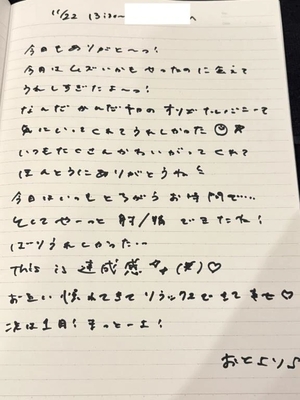 11/22 13:30〜 へ
今日もありがと〜っ!
今日はムズいかもやったのに会えて
うれしすぎたよ〜っ!
なんだかんだ
気にいってくれてうれしかった
いつもたくさんかわいがってくれて
ほんとうにありがとうね
今日はいつもとちがうお時間で...
そしてやーっと 射/精 できたね!
ばりうれしかった...
This is 達成感 ♡
お互い慣れてきてリラックスできて幸せ♡
次は1月! まっとーよ!